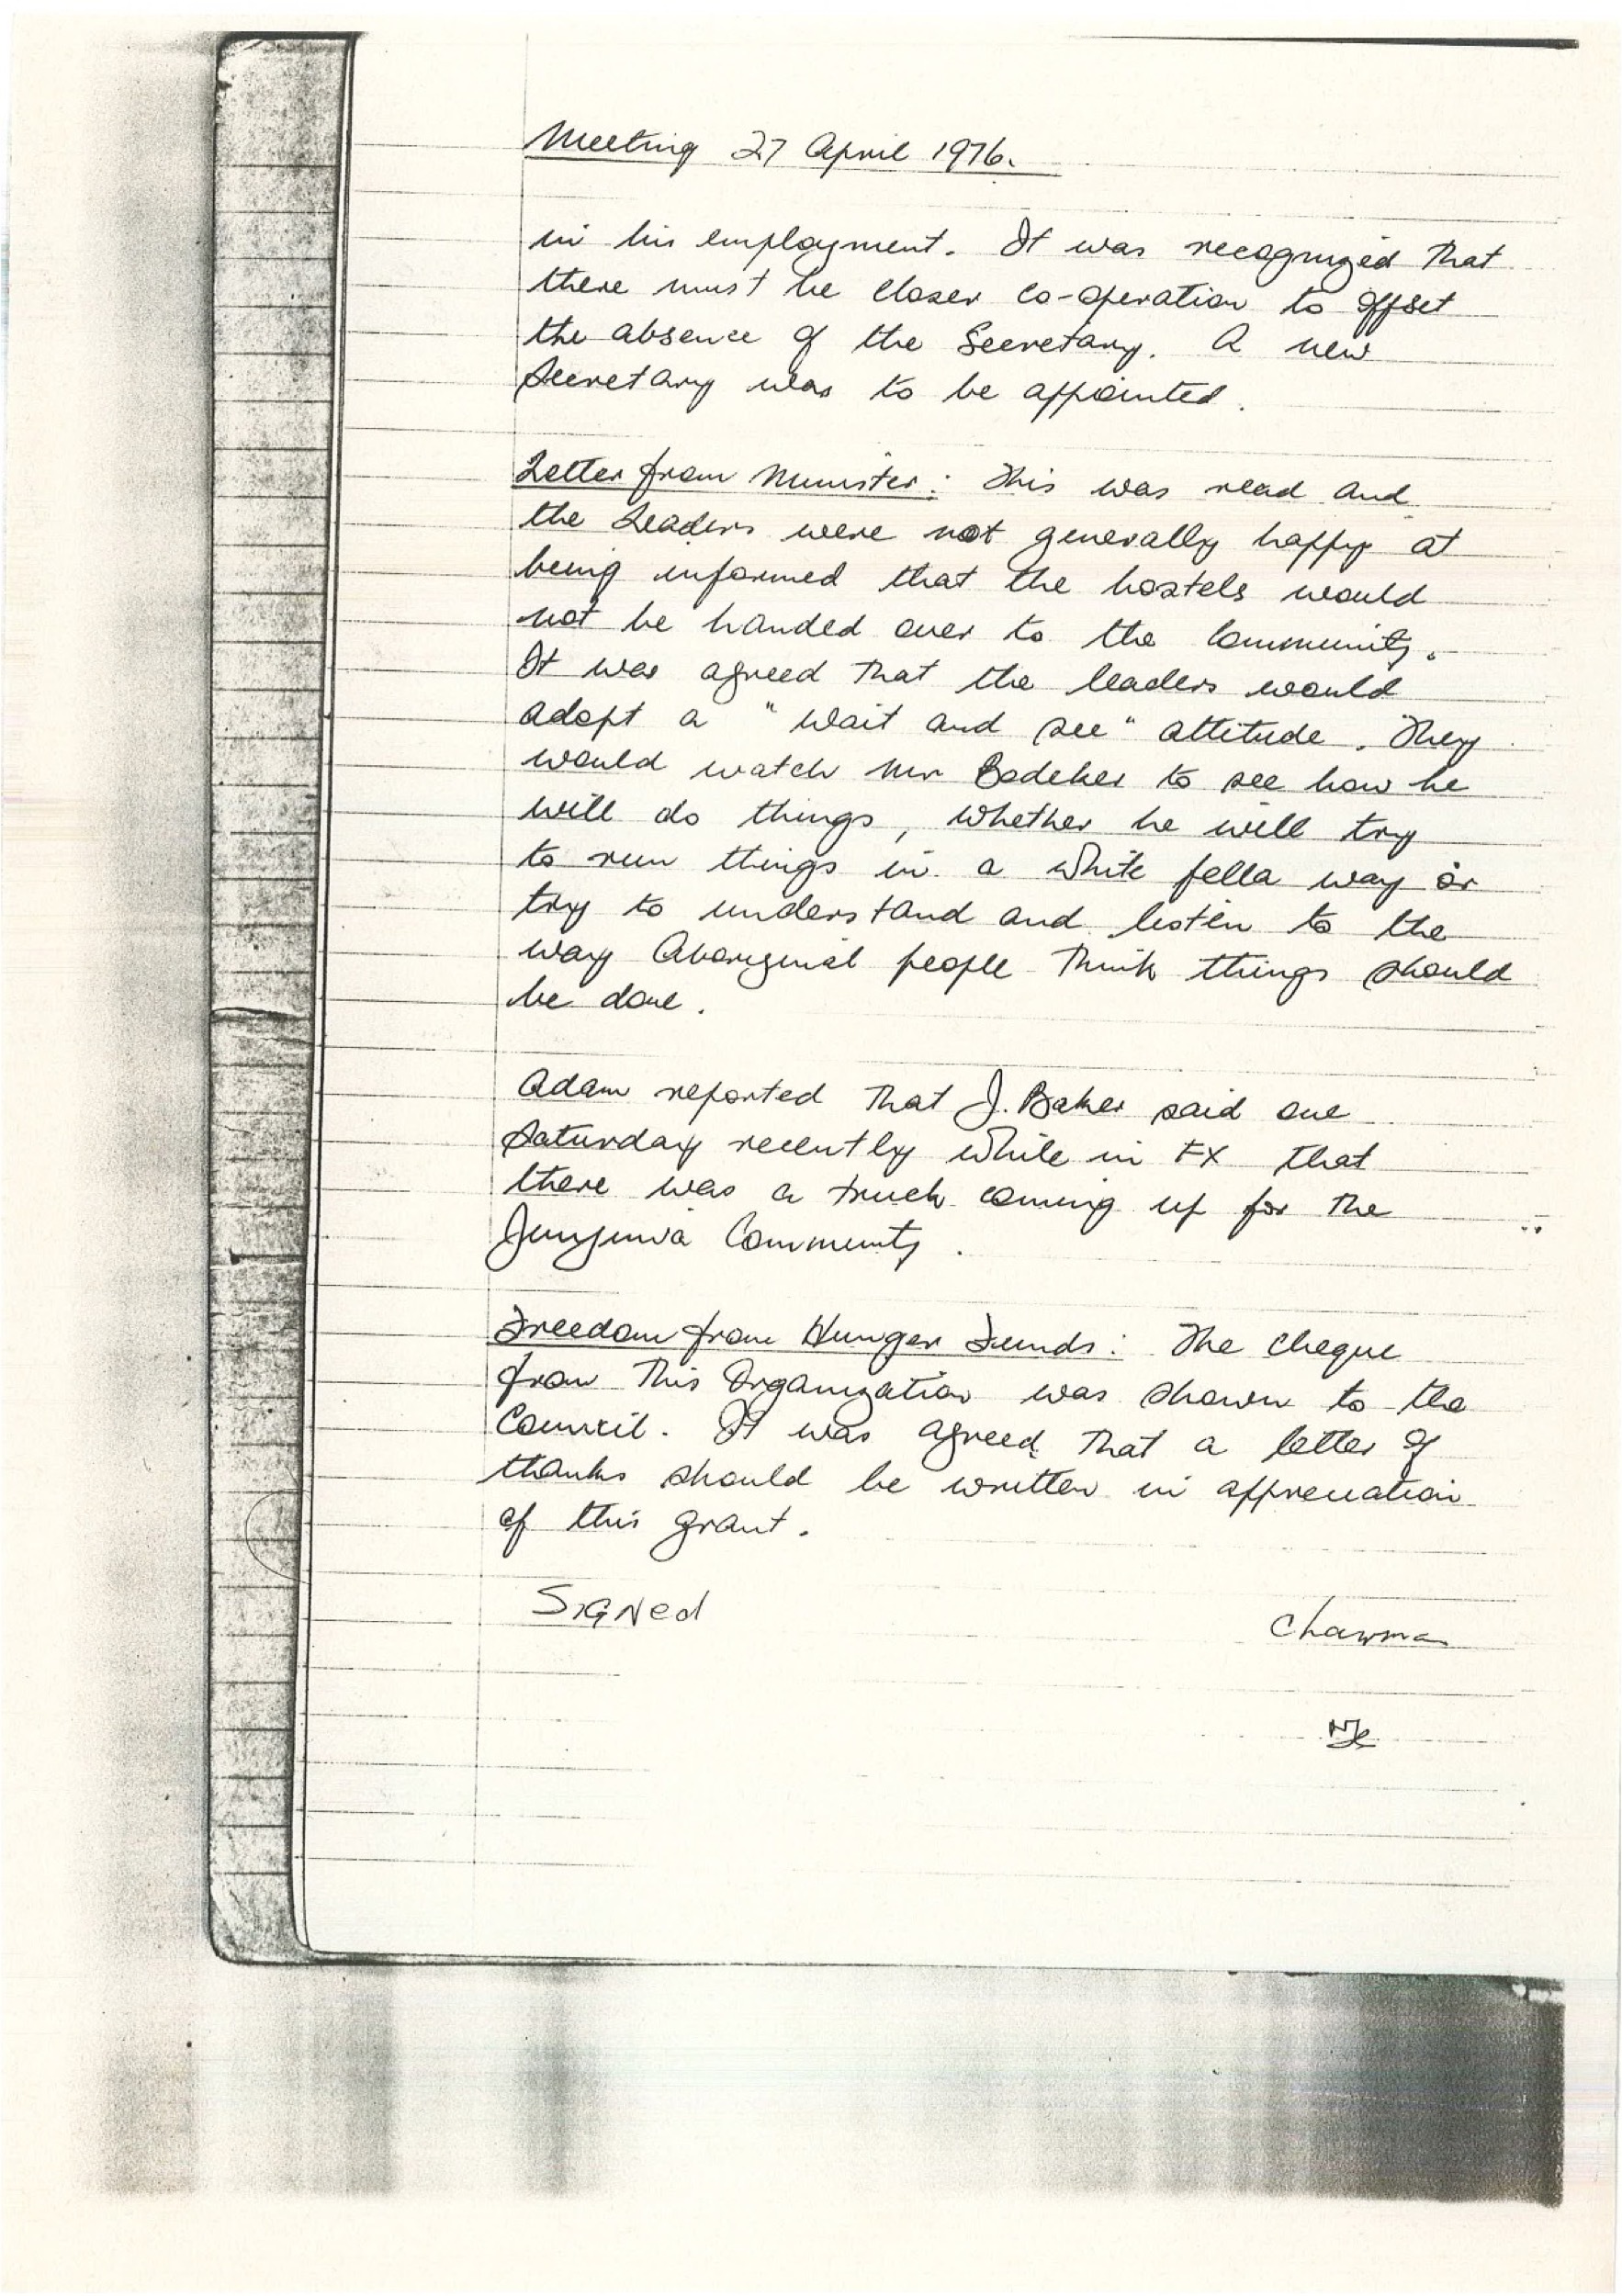 Meeting 27 April 1976.
in his employment. It was recognized that
there must be closer co-operation to offset
the absence of the Secretary. A new
Secretary was to be appointed.
Letter from Minister: This was read and
the Leaders were not generally happy at
being informed that the hostels would
not be handed over to the Community.
It was agreed that the leaders would
adopt a "wait and see" attitude. They
would watch Mr Bedeker to see how he
will do things, whether he will try
to run things in a white fella way or
try to understand and listen to the
way Aboriginal people think things should
be done.
Adam reported that J. Baker said one
Saturday recently while in FX that
there was a truck coming up for the
Junjuwa Community.
Freedom from Hunger Funds: The cheque
from this Organization was shown to the
Council. It was agreed that a letter of
thanks should be written in appreciation
of this grant.
SIGNed
Chairman